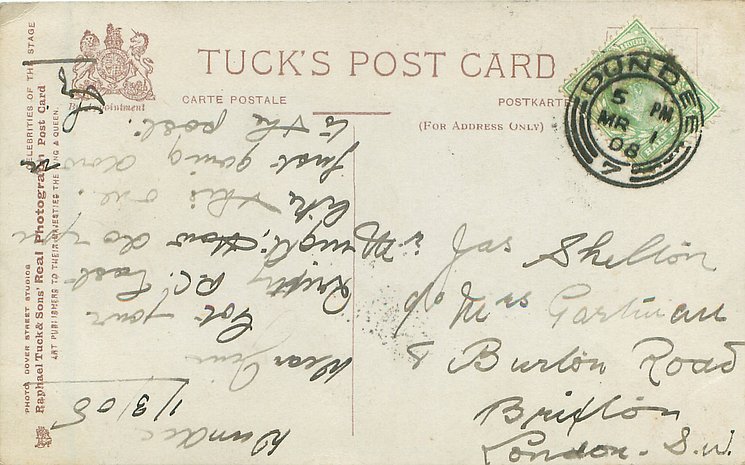 TUCK'S POST CARD
By Appointment
CARTE POSTALE
POSTKARTE
(FOR ADDRESS ONLY)
DUNDEE
5 PM
MR 1
08
7
Jas Shelton
c/o Mrs Gartman
8 Burton Road
Brixton
London. S.W.
Dundee
1/3/08
Dear Jim
Got your
P.C. last
night. How do you
like this one.
Just going down
to the post.
PHOTO DOVER STREET STUDIOS
CELEBRITIES OF THE STAGE
Raphael Tuck & Sons' Real Photograph Post Card
ART PUBLISHERS TO THEIR MAJESTIES THE KING & QUEEN.